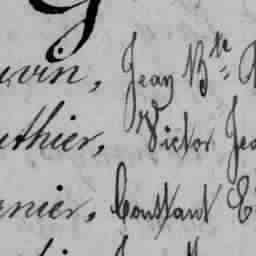 uvin, Jean Bte
uthier, Victor Jea
rnier, Constant E